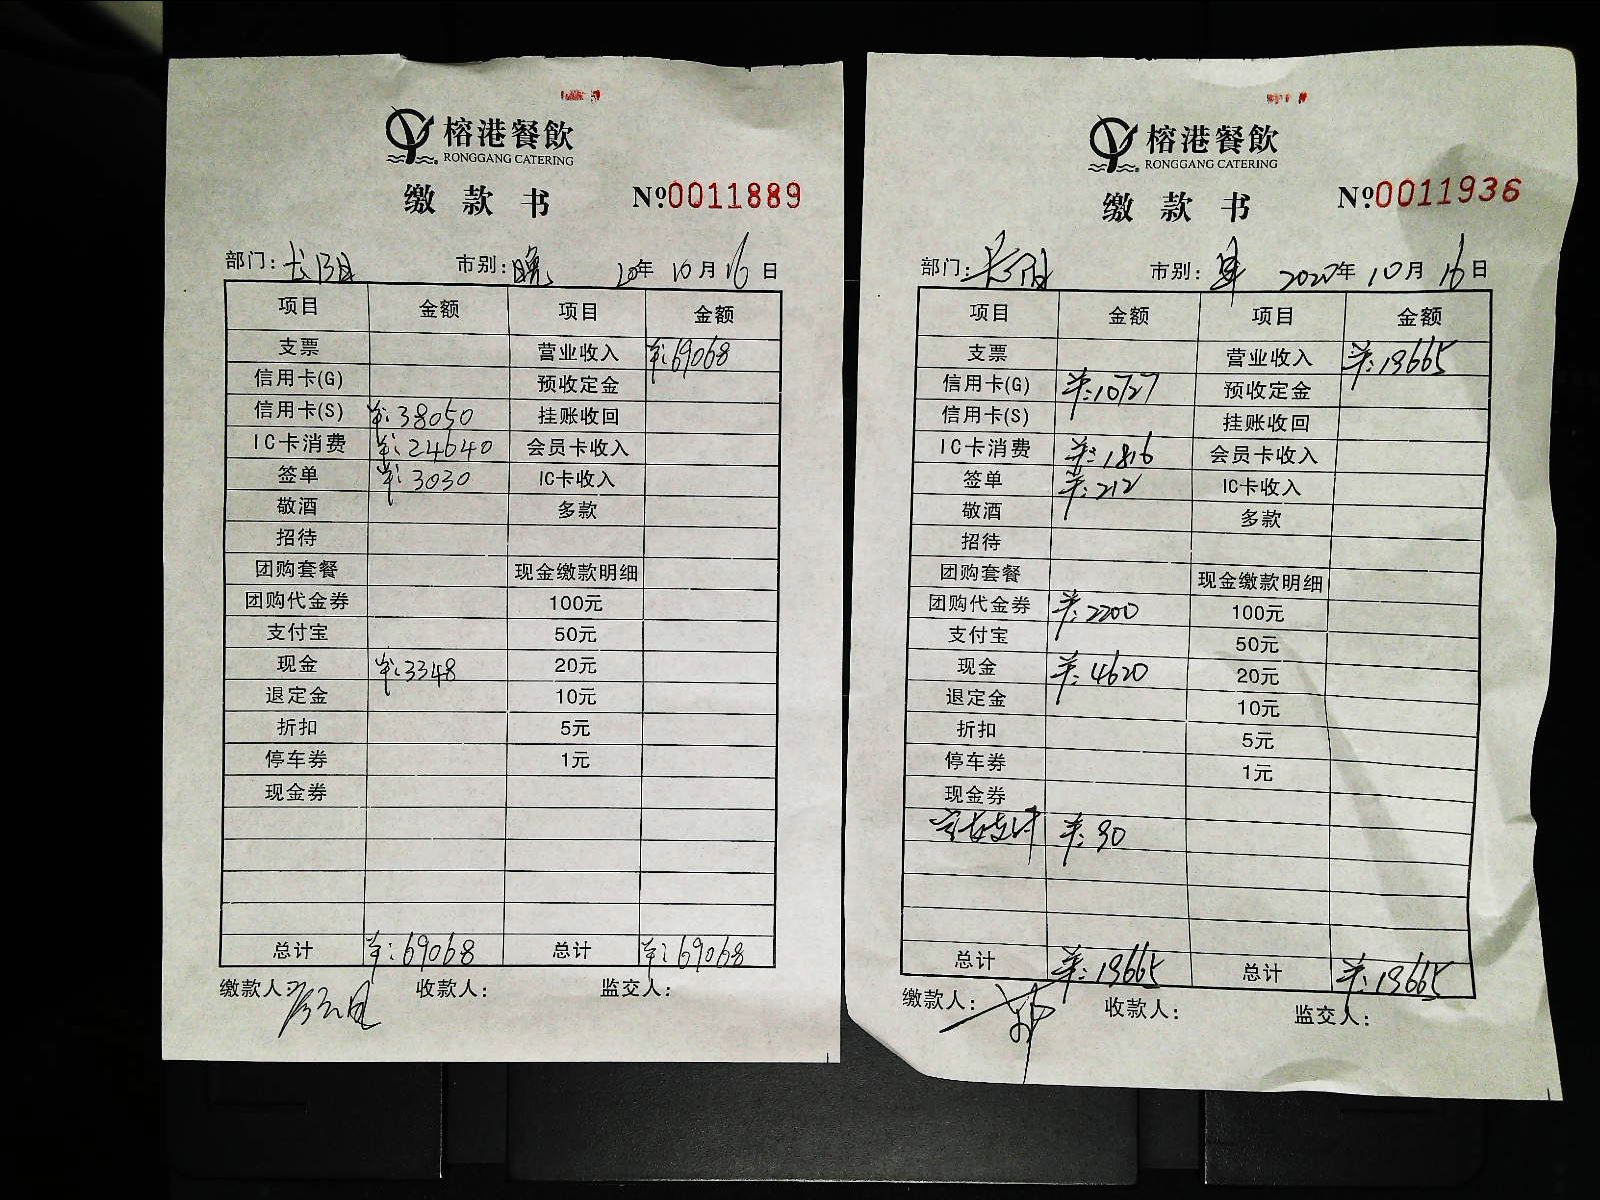 榕港餐飲
RONGGANG CATERING
缴款书 №0011889
部门: 长阳 市别: 晚 20年 10月 16日
项目 金额 项目 金额
支票 营业收入 ¥:69068
信用卡(G) 预收定金
信用卡(S) ¥:38050 挂账收回
IC卡消费 ¥:24640 会员卡收入
签单 ¥:3030 IC卡收入
敬酒 多款
招待
团购套餐 现金缴款明细
团购代金券 100元
支付宝 50元
现金 ¥:3348 20元
退定金 10元
折扣 5元
停车券 1元
现金券
总计 ¥:69068 总计 ¥:69068
缴款人: 收款人: 监交人:
榕港餐飲
RONGGANG CATERING
缴款书 №0011936
部门: 长阳 市别: 早 2020年 10月 16日
项目 金额 项目 金额
支票 营业收入 ¥:19665
信用卡(G) ¥:10727 预收定金
信用卡(S) 挂账收回
IC卡消费 ¥:1816 会员卡收入
签单 ¥:212 IC卡收入
敬酒 多款
招待
团购套餐 现金缴款明细
团购代金券 ¥:2200 100元
支付宝 50元
现金 ¥:4620 20元
退定金 10元
折扣 5元
停车券 1元
现金券
¥:90
总计 ¥:19665 总计 ¥:19665
缴款人: 收款人: 监交人: